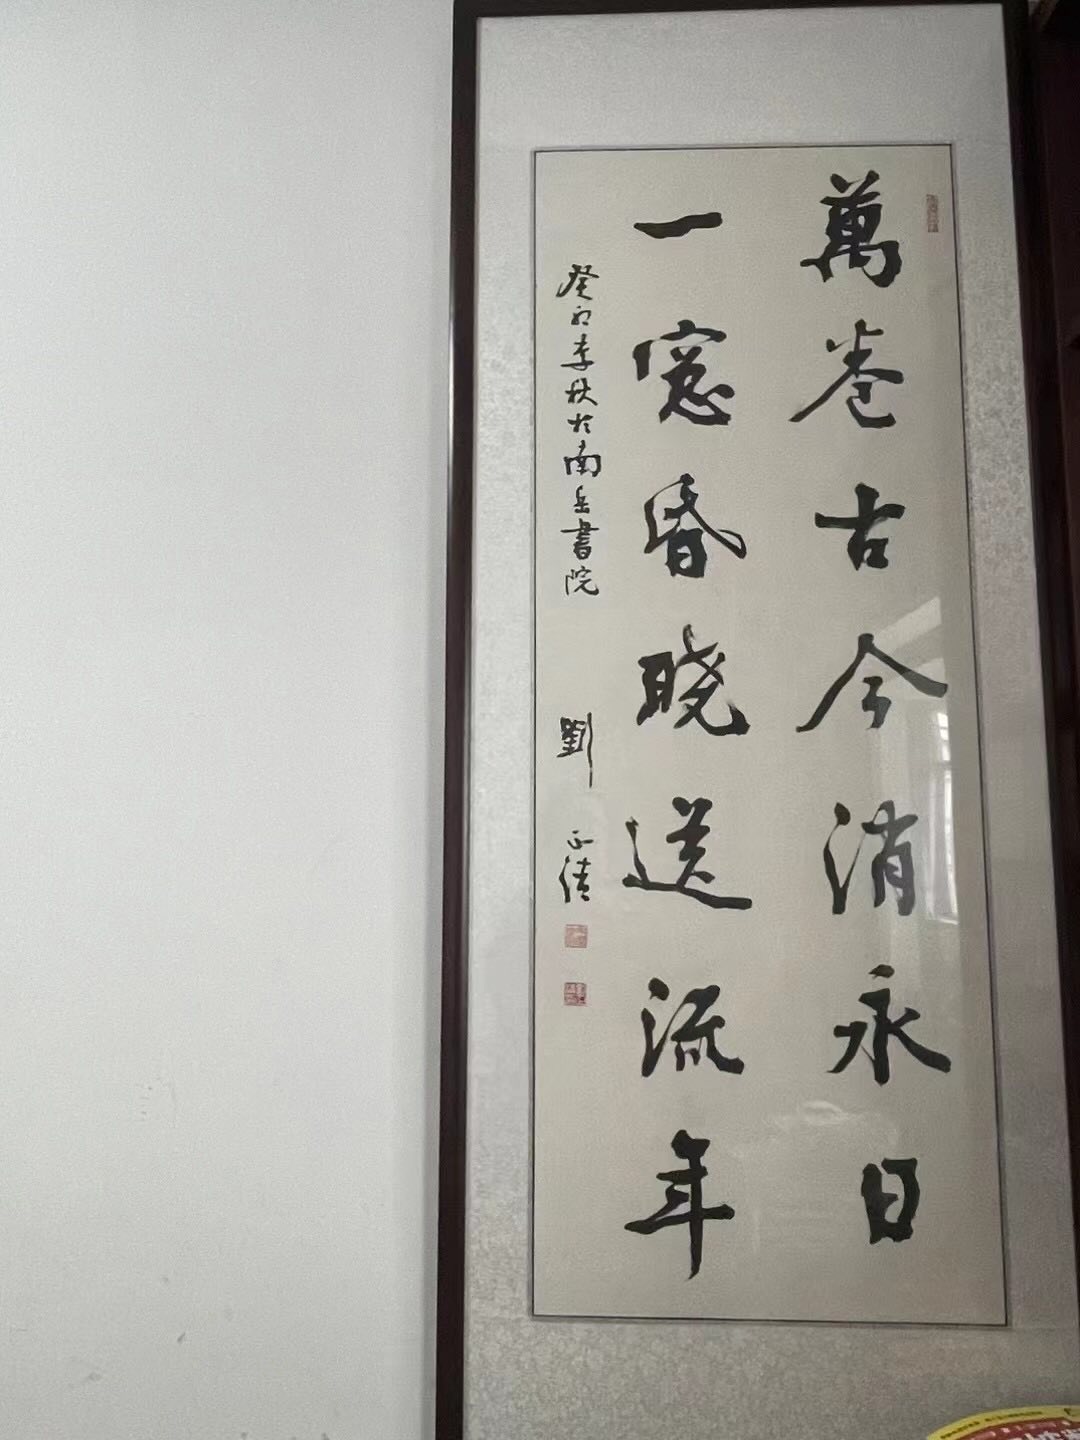 萬卷古今消永日
一窓昏晓送流年
癸卯季秋於南岳書院
劉正清